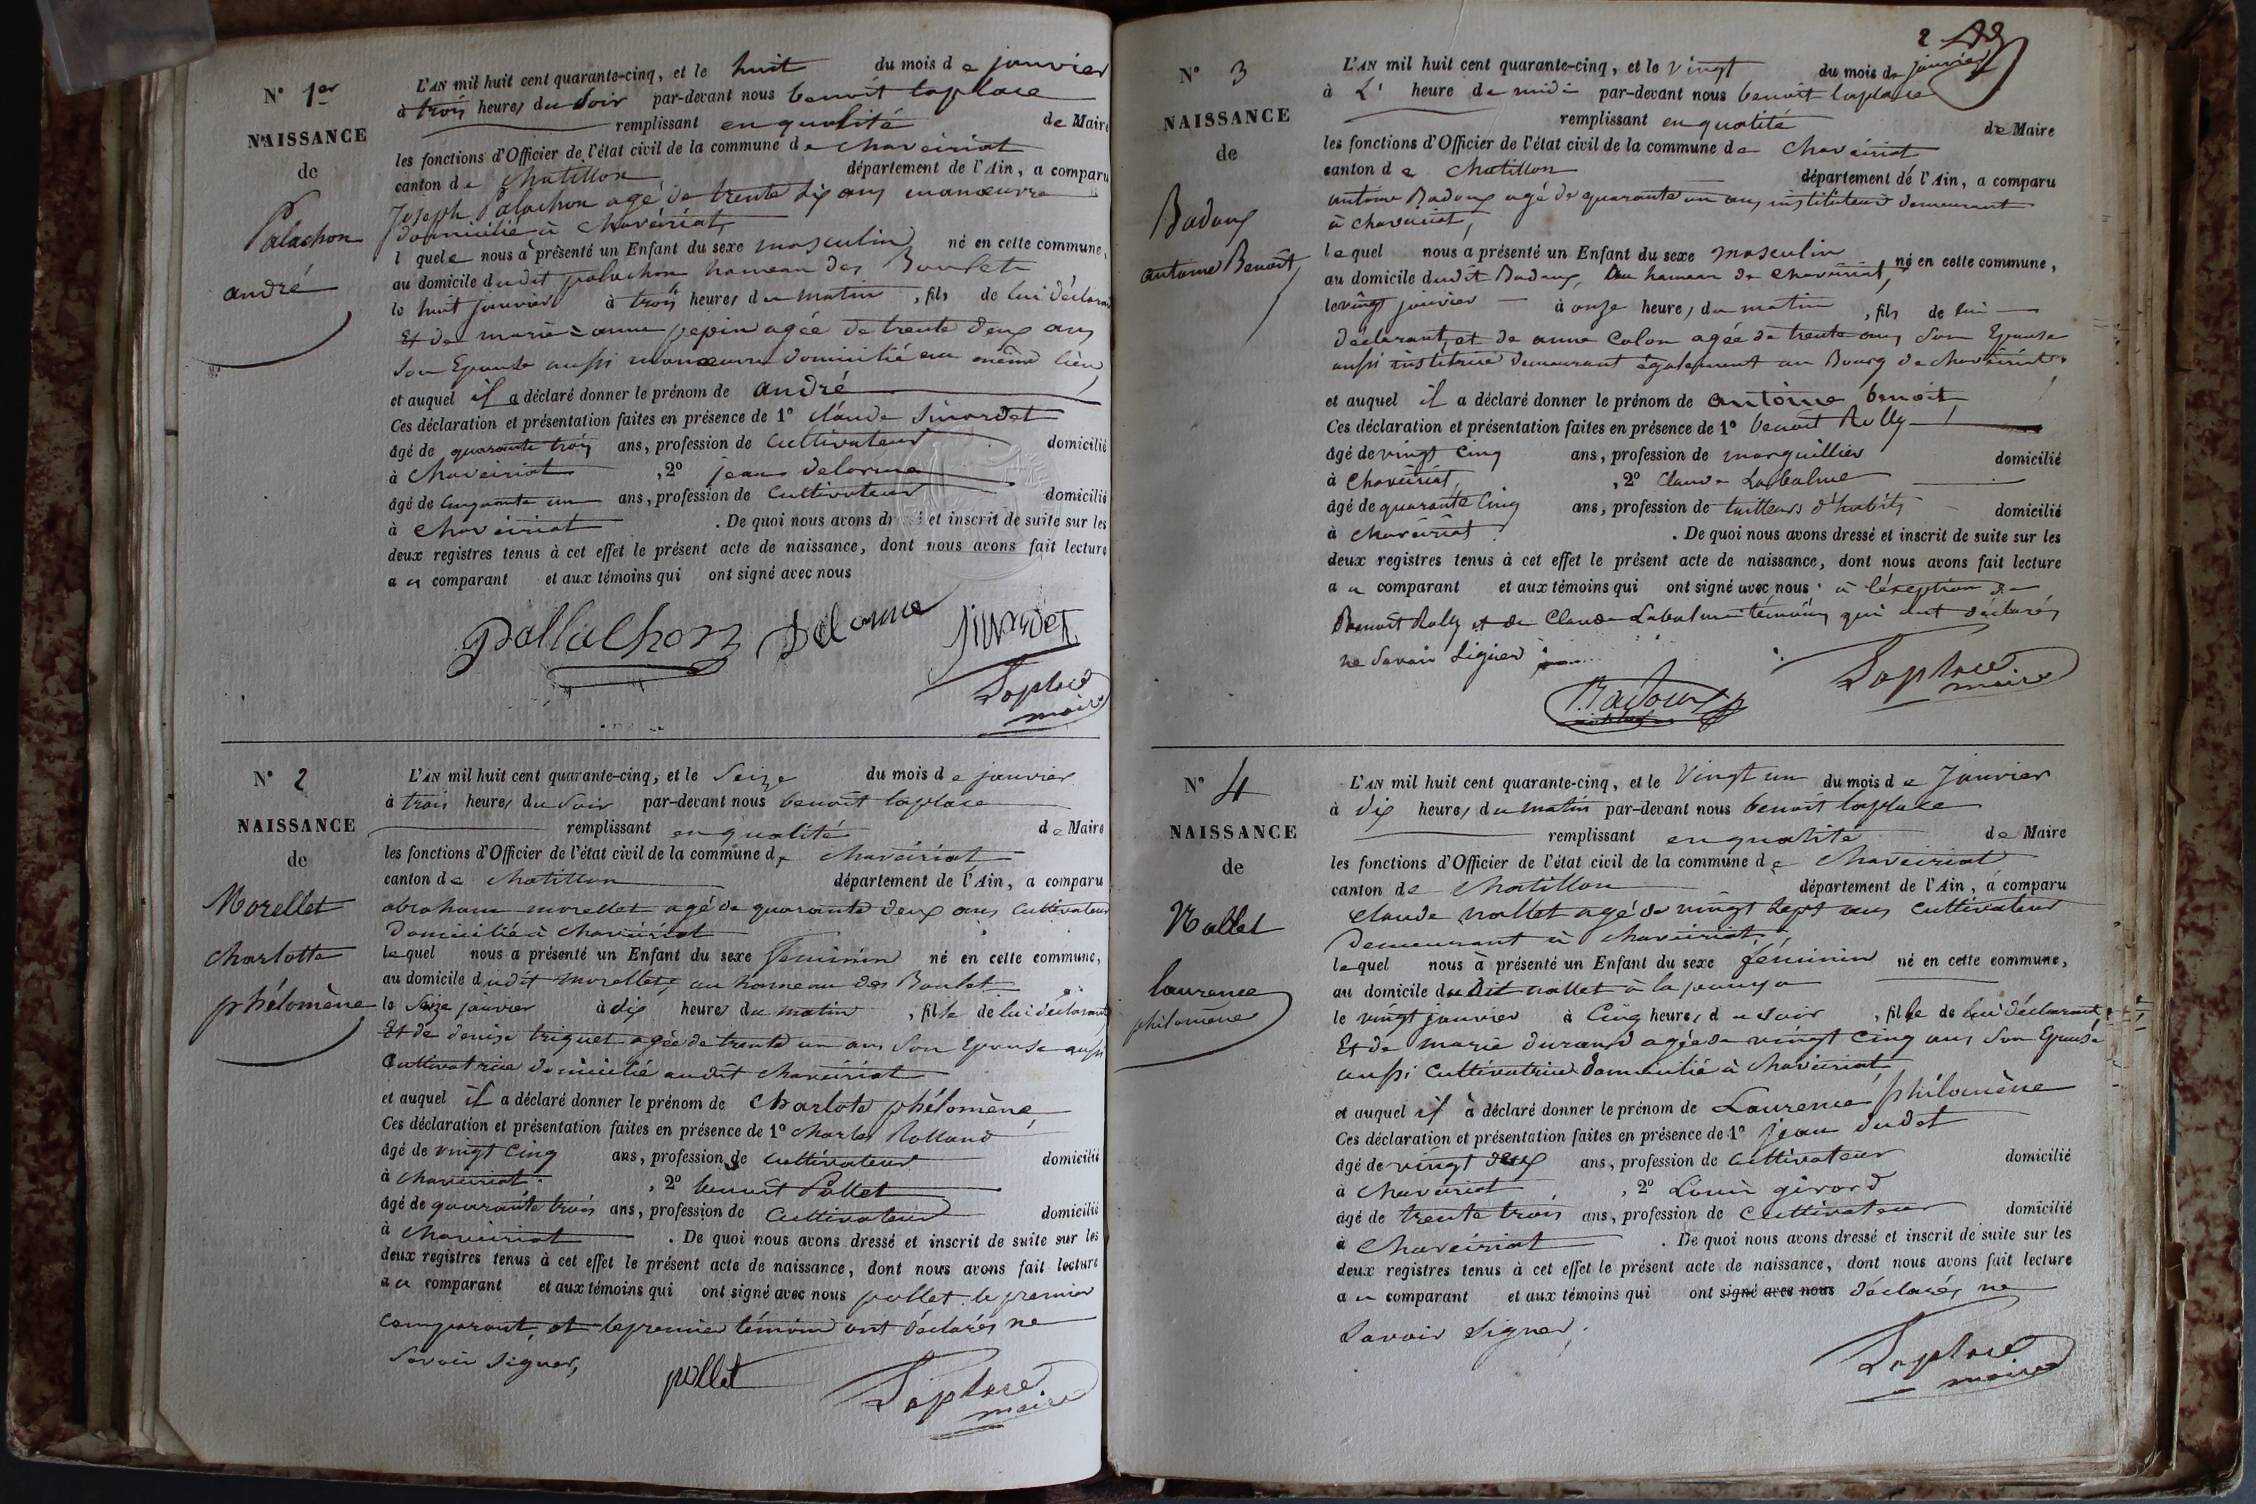 N° 1er
NAISSANCE
de
Palachon
andré
L'AN mil huit cent quarante-cinq, et le huit du mois de janvier
à trois heures du soir par-devant nous benoit laplace
remplissant en qualité de Maire
les fonctions d'Officier de l'état civil de la commune de chaveiriat
canton de chatillon département de l'Ain, a comparu
Joseph Palachon agé de trente six ans manœuvre
domicilié à chaveiriat,
lequel nous a présenté un Enfant du sexe masculin né en cette commune,
au domicile dudit palachon hameau des Boulets
le huit janvier à trois heures du matin, fils de lui déclarant
Et de marie-anne pepin agée de trente deux ans
son Epouse aussi manœuvre domicilié au même lieu
et auquel il a déclaré donner le prénom de andré
Ces déclaration et présentation faites en présence de 1° claude sivordet
âgé de quarante trois ans, profession de cultivateur domicilié
à chaveiriat, 2° jean delorme
âgé de cinquante un ans, profession de cultivateur domicilié
à chaveiriat. De quoi nous avons dressé et inscrit de suite sur les
deux registres tenus à cet effet le présent acte de naissance, dont nous avons fait lecture
au comparant et aux témoins qui ont signé avec nous
pallachon Delorme
Laplace
maire
N° 2
NAISSANCE
de
Morellet
charlotte
phélomène
L'AN mil huit cent quarante-cinq, et le seize du mois de janvier
à trois heures du soir par-devant nous benoit laplace
remplissant en qualité de Maire
les fonctions d'Officier de l'état civil de la commune de chaveiriat
canton de chatillon département de l'Ain, a comparu
abraham morellet agé de quarante deux ans cultivateur
domicilié à chaveiriat
lequel nous a présenté un Enfant du sexe feminin né en cette commune,
au domicile dudit morellet, au hameau des Boulets
le seize janvier à dix heures du matin, fille de lui déclarant
Et de denise triquet agée de trente un ans son Epouse aussi
Cultivatrice domicilié audit chaveiriat
et auquel il a déclaré donner le prénom de charlote phélomène
Ces déclaration et présentation faites en présence de 1° charles Rolland
âgé de vingt cinq ans, profession de cultivateur domicilié
à chaveiriat, 2° benoit Pollet
âgé de quarante trois ans, profession de cultivateur domicilié
à chaveiriat. De quoi nous avons dressé et inscrit de suite sur les
deux registres tenus à cet effet le présent acte de naissance, dont nous avons fait lecture
au comparant et aux témoins qui ont signé avec nous pollet le premier
comparant, et le premier témoin ont déclarés ne
savoir signer,
pollet
Laplace
maire
2
N° 3
NAISSANCE
de
Badoux
antoine Benoit,
L'AN mil huit cent quarante-cinq, et le vingt du mois de janvier
à L' heure de midi par-devant nous benoit laplace
remplissant en qualité de Maire
les fonctions d'Officier de l'état civil de la commune de chaveiriat
canton de chatillon département de l'Ain, a comparu
antoine Badoux agé de quarante un ans, instituteur demeurant
à chaveiriat,
lequel nous a présenté un Enfant du sexe masculin né en cette commune,
au domicile dudit Badoux, au hameau de chaveiriat,
le vingt janvier à onze heures, du matin, fils de lui
déclarant, et de anne Colon agée de trente ans son Epouse
aussi institrice demeurant également au Bourg de chaveiriat.
et auquel il a déclaré donner le prénom de antoine benoit
Ces déclaration et présentation faites en présence de 1° benoit Rolly
âgé de vingt cinq ans, profession de marguillier domicilié
à chaveiriat, 2° Claude Labalme
âgé de quarante cinq ans, profession de tailleurs d'habits domicilié
à chaveiriat. De quoi nous avons dressé et inscrit de suite sur les
deux registres tenus à cet effet le présent acte de naissance, dont nous avons fait lecture
au comparant et aux témoins qui ont signé avec nous à l'éxeption de
Benoit Rolly et de Claude Labalme témoins qui ont déclarés
ne savoir signer
Badoux
Laplace
maire
N° 4
NAISSANCE
de
Nallet
laurence
philomène
L'AN mil huit cent quarante-cinq, et le vingt un du mois de Janvier
à dix heures, du matin par-devant nous benoit laplace
remplissant en qualité de Maire
les fonctions d'Officier de l'état civil de la commune de chaveiriat
canton de chatillon département de l'Ain, a comparu
Claude nallet agé de vingt sept ans cultivateur
demeurant à chaveiriat,
lequel nous a présenté un Enfant du sexe féminin né en cette commune,
au domicile dudit nallet à la
le vingt janvier à cinq heures, du soir, fille de lui déclarant
Et de marie durand agée de vingt cinq ans son Epouse
aussi cultivatrice domicilié à chaveiriat
et auquel il a déclaré donner le prénom de Laurence philomène
Ces déclaration et présentation faites en présence de 1° jean dudet
âgé de vingt deux ans, profession de cultivateur domicilié
à chaveiriat, 2° Louis girard
âgé de trente trois ans, profession de cultivateur domicilié
à chaveiriat. De quoi nous avons dressé et inscrit de suite sur les
deux registres tenus à cet effet le présent acte de naissance, dont nous avons fait lecture
au comparant et aux témoins qui ont signé avec nous déclarés ne
savoir signer,
Laplace
maire